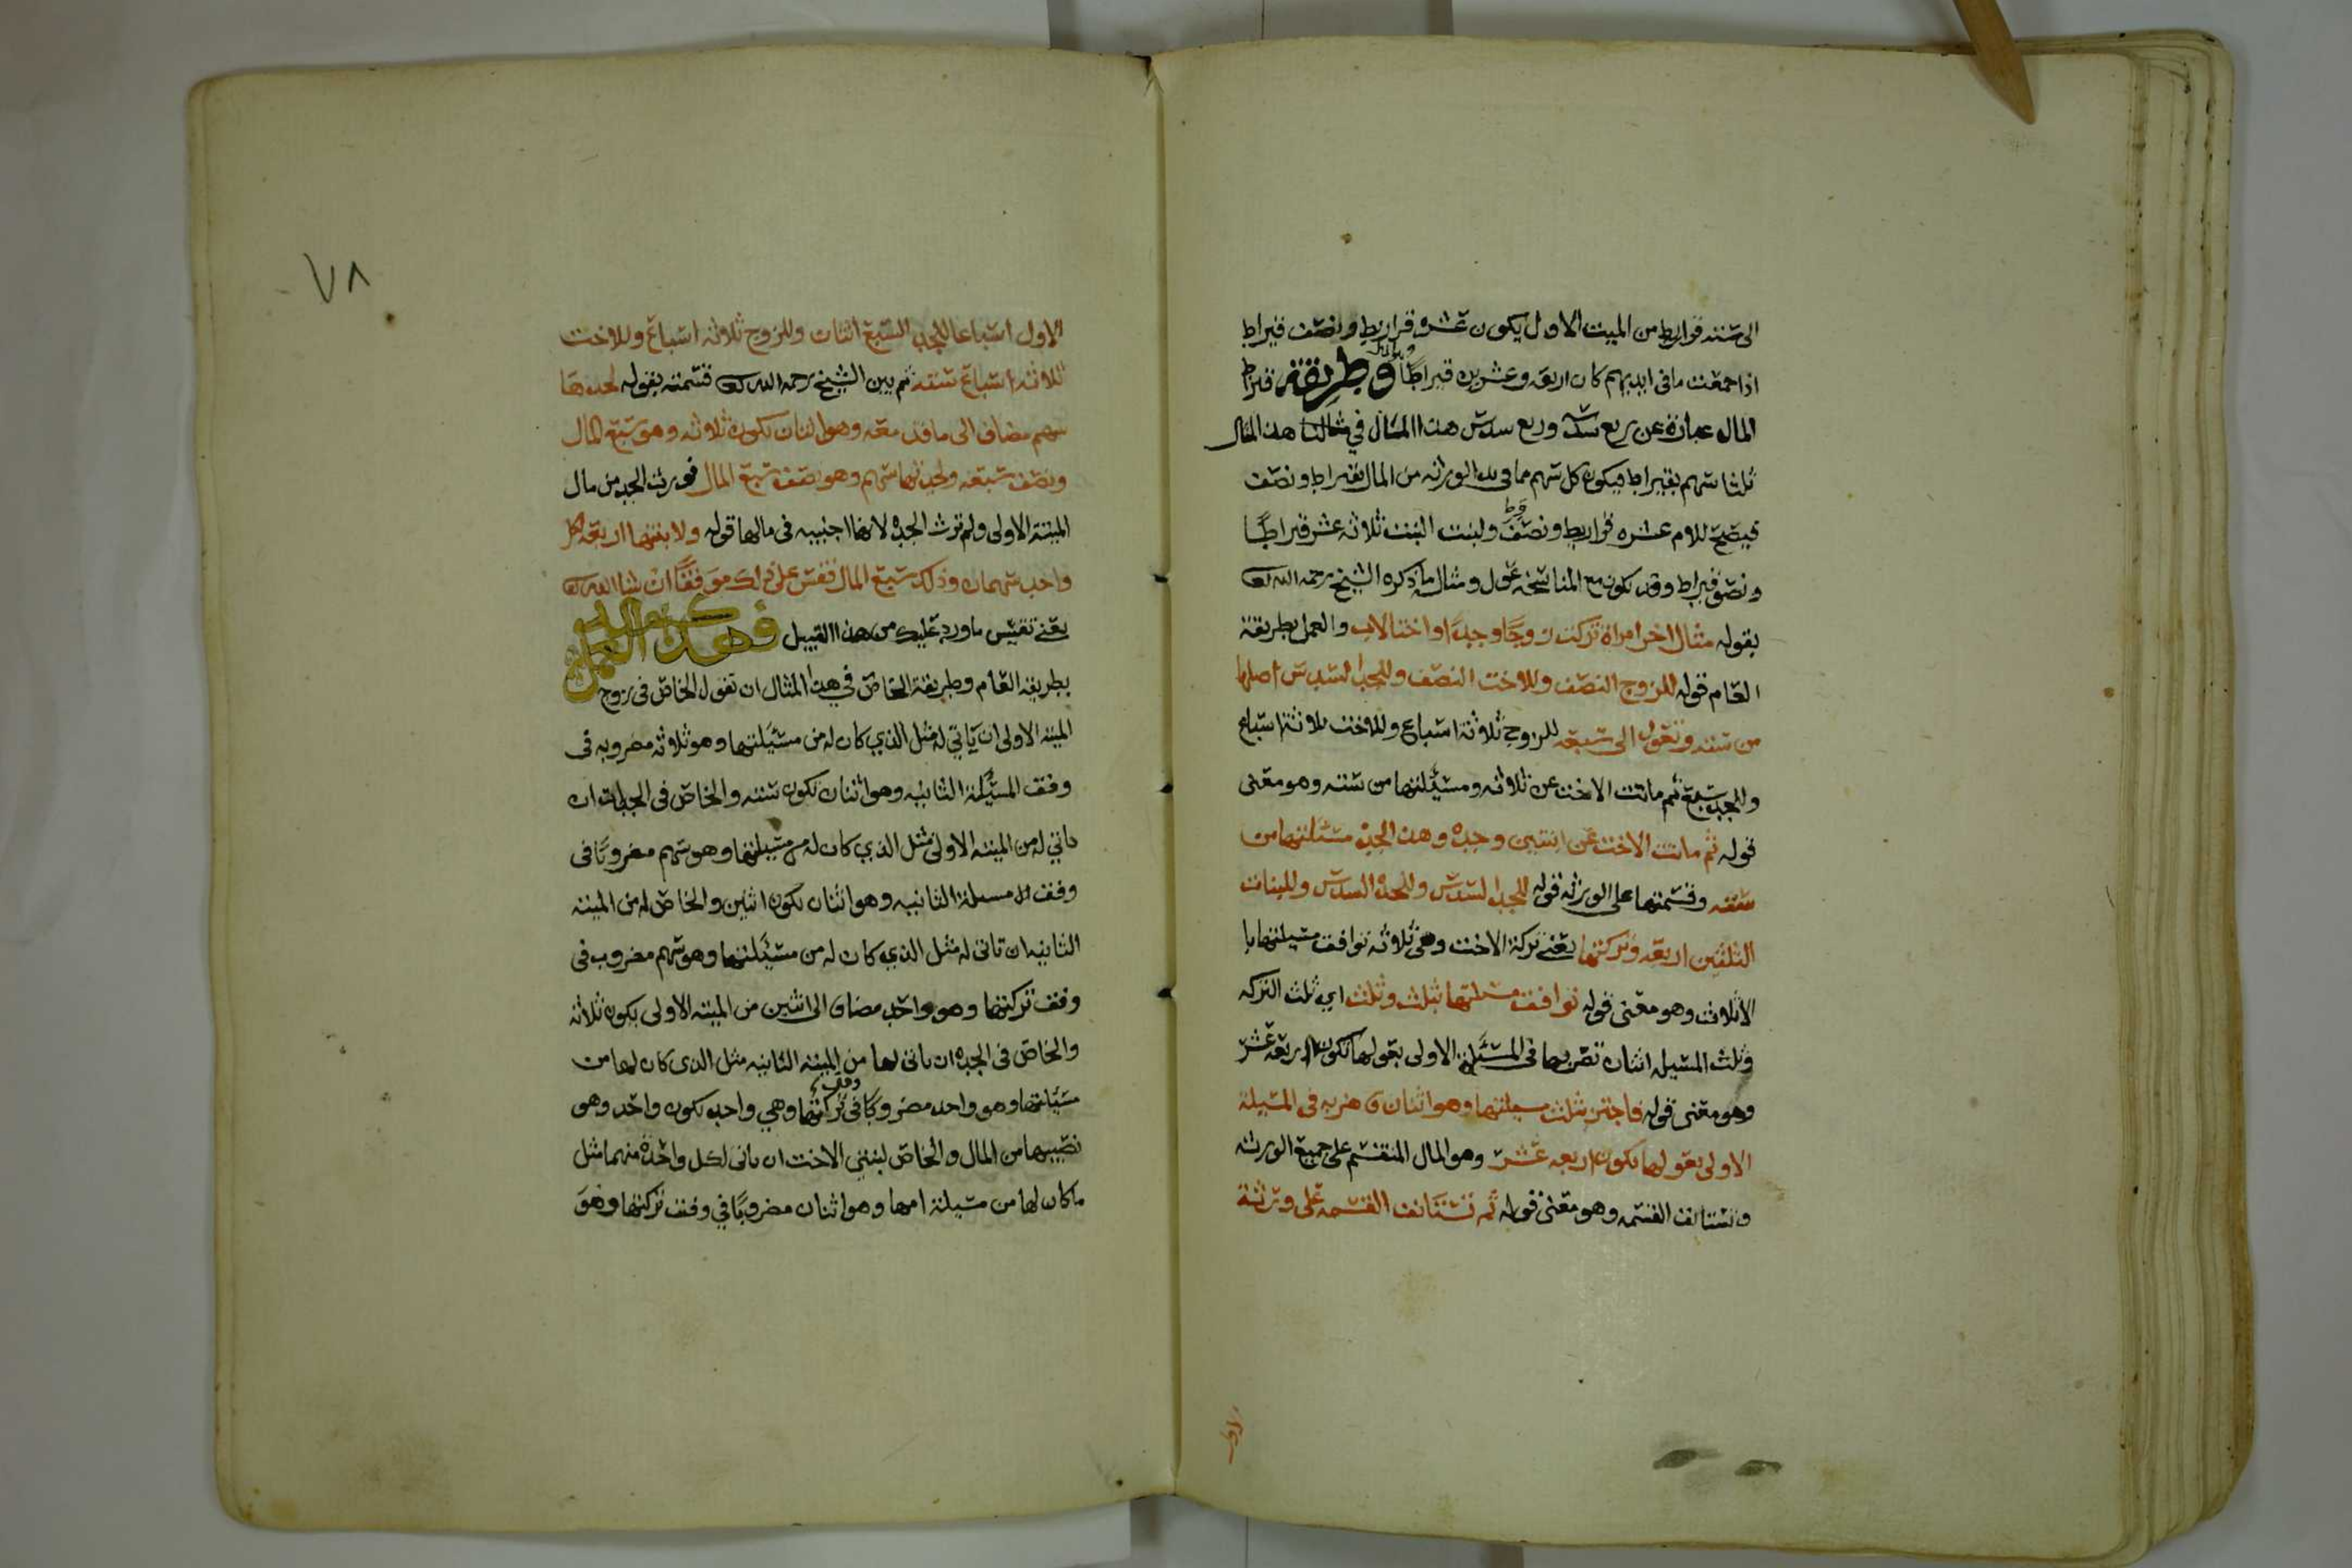 الى ستة قراريط من الميت الاول يكون عشره قراريط ونصف قيراط
اذا جمعت ما فى ايديهم كان اربعه وعشرين قيراطًا وطريقة قيراط
المال عبارة عن ربع سدس وربع سدس هذا المثال في هذا المثال
ثلثا سهم بقيراط فيكون كل سهم مما فى يد الورثه من المال بقيراط ونصف
فيصح للام عشره قراريط ونصف ولبنت البنت ثلاثه عشر قيراطًا
ونصف قيراط وقد يكون مع المناسخه عول ومثاله ما ذكره الشيخ رحمه الله
بقوله مثال اخر امراة تركت زوجًا وجدًا واختا لاب والعمل بطريقة
العام قوله للزوج النصف وللاخت النصف وللجد السدس اصلها
من سته وتعول الى سبعه للزوج ثلاثة اسباع وللاخت ثلاثة اسباع
وللجد سبع ثم ماتت الاخت عن ثلاثه ومسئلتها من سته وهو معنى
قوله ثم ماتت الاخت عن ابنتين وجده وهذا الجد مسئلتها من
سته وقسمتها على الورثه قوله للجد السدس وللجده السدس وللبنات
الثلثين اربعه وتركتها يعني تركة الاخت وهي ثلاثه توافق مسيلتها با
الاثلاث وهو معنى قوله توافق مسئلتها بثلث وثلث اي ثلث التركه
وثلث المسيله اثنان تضربها فى المسئله الاولى بعولها تكون اربعه عشر
وهو معنى قوله فاجتز بثلث مسئلتها وهو اثنان ضربه فى المسيلة
الاولى بعولها تكون اربعه عشر وهو المال المنقسم على جميع الورثه
وتستانف القسمه وهو معنى قوله ثم تستانف القسمه على ورثة
الاول
٧٨
الاول اسباعا للجد السبع اثنان وللزوج ثلاثه اسباع وللاخت
ثلاثه اسباع سته ثم بين الشيخ رحمه الله قسمته بقوله لجدها
سهم مضاف الى ما قد معه وهو اثنان تكون ثلاثه وهو سبع المال
ونصف سبعه ولجدتها سهم وهو نصف سبع المال فورث الجد من مال
الميتة الاولى ولم ترث الجده لانها اجنبيه فى مالها قوله ولابنتها اربعه لكل
واحد سهمان وذلك سبع المال فقس على ذلك موفقًا ان شا الله
يعني تقيس ما ورد عليك من هذا القبيل فهذه العمل
بطريقه العام وطريقة الخاص في هذا المثال ان تقول الخاص فى زوج
الميته الاولى ان ياتي له مثل الذي كان له من مسئلتها وهو ثلاثه مضروبه فى
وفق المسئلة الثانيه وهو اثنان تكون سته والخاص فى الجد ان
ياتي له من الميته الاولى مثل الذي كان له من مسيلتها وهو سهم مضروبًا فى
وفق المسيلة الثانيه وهو اثنان تكون اثنين والخاص له من الميته
الثانيه ان تاتى له مثل الذي كان له من مسئلتها وهو سهم مضروب فى
وفق تركتها وهو واحد مضاف الى اثنين من الميته الاولى يكون ثلاثه
والخاص فى الجده ان ياتى لها من الميته الثانيه مثل الذى كان لها من
مسئلتها وهو واحد مضروبًا فى وفق تركتها وهي واحد تكون واحد وهو
نصيبها من المال والخاص لبنتي الاخت ان ياتى لكل واحده منهما مثل
ما كان لها من مسيلة امها وهو اثنان مضروبًا في وفق تركتها وهو